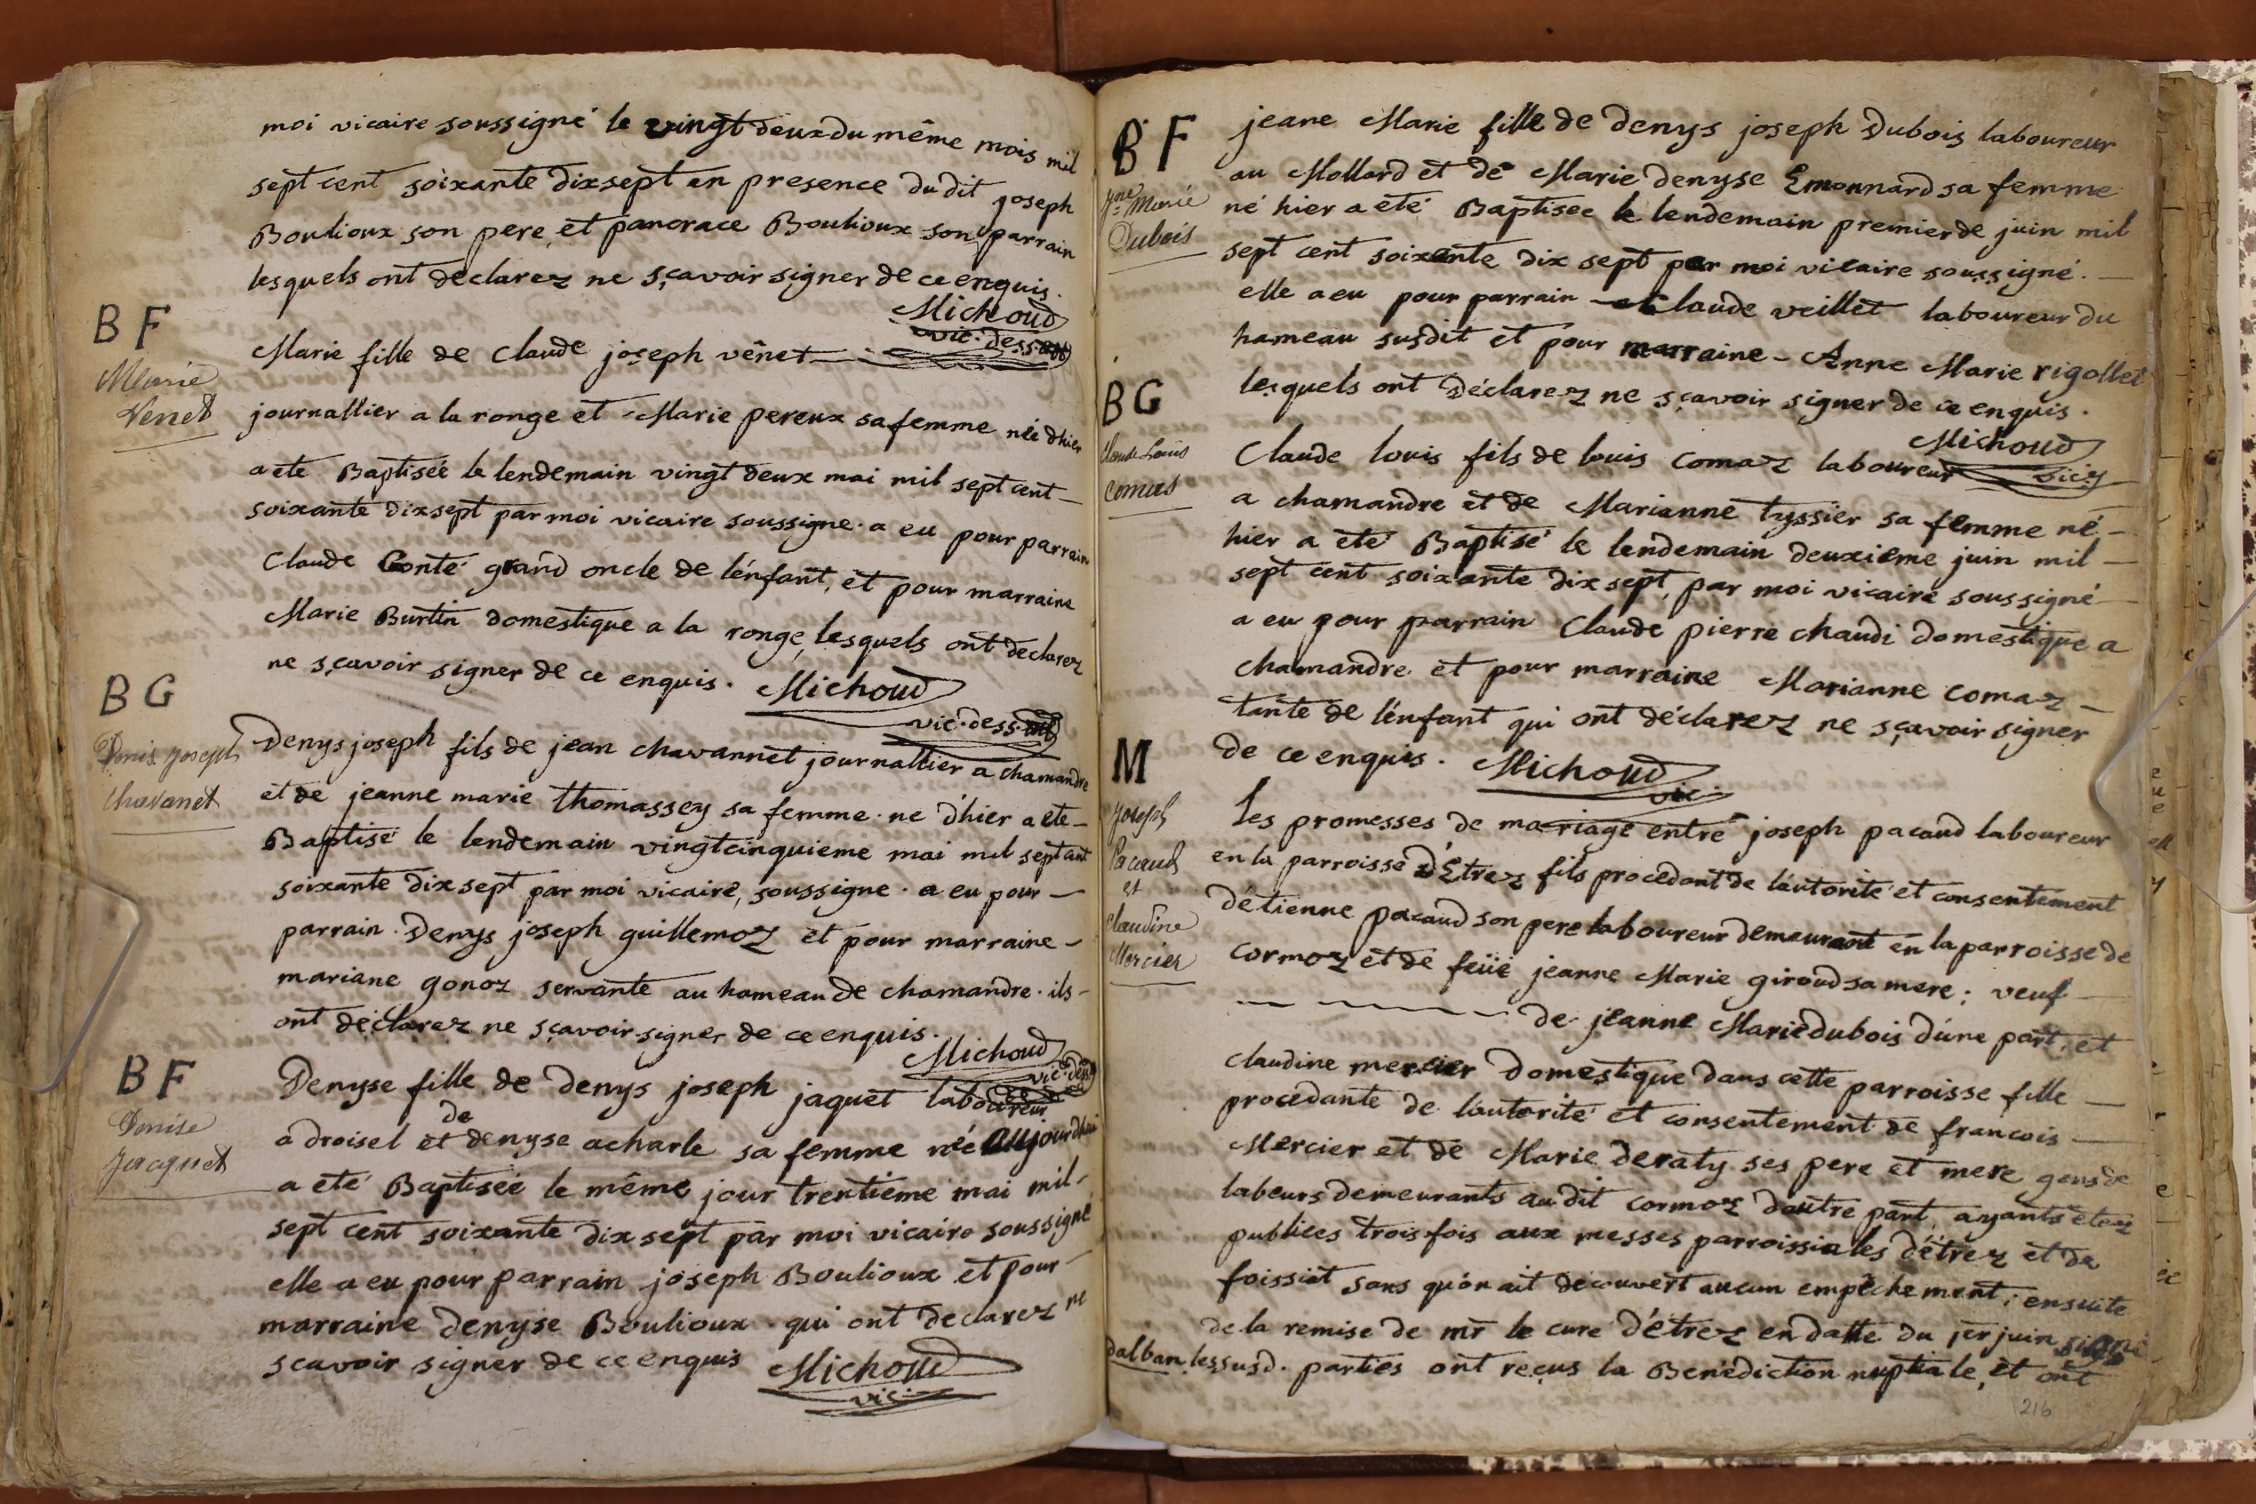 moi vicaire soussigné le vingt deux du même mois mil
sept cent soixante dix sept en presence du dit joseph
Boulioux son pere, et pancrace Boulioux son parrain
lesquels ont declarez ne sçavoir signer de ce enquis.
Michoud
vic. dess.
B F
Marie
Venet
Marie fille de Claude joseph vênet
journallier a la ronge et Marie pereux sa femme née d'hier
a été Baptisée le lendemain vingt deux mai mil sept cent
soixante dix sept par moi vicaire soussigne. a eu pour parrain
Claude Conte grand oncle de l'énfant, et pour marraine
Marie Burtin domestique a la ronge, lesquels ont declarez
ne sçavoir signer de ce enquis. Michoud
vic. dess.
B G
Denis joseph
Chavanet
Denys joseph fils de jean chavannet journallier a chamandre
et de jeanne marie thomassey sa femme. ne d'hier a ete
Baptisé le lendemain vingtcinquieme mai mil sept cent
soixante dix sept par moi vicaire, soussigne. a eu pour
parrain. Denys joseph guillemoz et pour marraine
mariane gonoz servante au hameau de chamandre. ils
ont declarez ne sçavoir signer de ce enquis.
Michoud
vic. dess.
B F
Denise
Jacquet
Denyse fille de Denys joseph jaquet laboureur
a droisel et de denyse acharle sa femme née aujourdhui
a eté Baptisée le même jour trentieme mai mil
sept cent soixante dix sept par moi vicaire soussigné
elle a eu pour parrain joseph Boulioux et pour
marraine denyse Boulioux. qui ont declarez ne
scavoir signer de ce enquis Michoud
vic.
B F
Jne Marie
Dubois
jeane Marie fille de denys joseph Dubois laboureur
au Mollard et de Marie denyse Emonnard sa femme
né hier a eté Baptisée le lendemain premier de juin mil
sept cent soixante dix sept par moi vicaire soussigné.
elle a eu pour parrain Claude veillet laboureur du
hameau susdit et pour marraine Anne Marie rigollet
lesquels ont déclarez ne sçavoir signer de ce enquis.
Michoud
vic.
B G
Claude Louis
Comas
Claude louis fils de louis comaz laboureur
a chamandre et de Marianne tyssier sa femme né
hier a été Baptisé le lendemain deuxieme juin mil
sept cent soixante dix sept, par moi vicaire soussigné
a eu pour parrain Claude pierre chaudi domestique a
chamandre et pour marraine Marianne comaz
tante de l'énfant qui ont déclarez ne sçavoir signer
de ce enquis. Michoud
vic.
M
joseph
Pacaud
et
Claudine
Mercier
Les promesses de mariage entre joseph pacaud laboureur
en la parroisse d'Etrez fils procedant de l'autorité et consentement
d'étienne pacaud son pere laboureur demeurant en la parroisse de
cormoz et de feüe jeanne Marie giroud sa mere; veuf
de jeanne Marie dubois d'une part, et
claudine mercier domestique dans cette parroisse fille
procedante de l'autorité et consentement de francois
Mercier et de Marie deraty ses pere et mere gens de
labeurs demeurants au dit cormoz dautre part, ayants étez
publiées trois fois aux messes parroissiales d'étrez et de
foissiat sans qu'on ait découvert aucun empêchement; ensuite
de la remise de mr le curé d'étrez en datte du 1er juin signé
dalban. les susd. parties ont reçus la Benédiction nuptiale, et ont
216